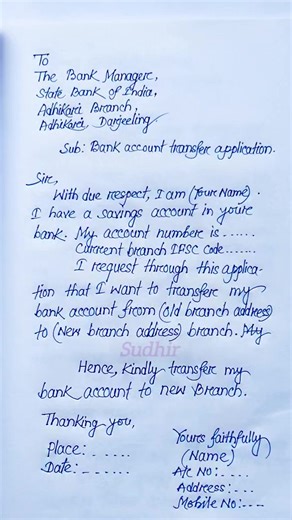 To
The Bank Manager,
State Bank of India,
Adhikari Branch,
Adhikari Darjeeling
Sub: Bank account transfer application.
Sir,
With due respect, I am (Your Name).
I have a savings account in your
bank. My account number is ......
Current branch IFSC Code.......
I request through this applica-
tion that I want to transfer my
bank account from (old branch address)
to (New branch address) branch. My
Sudhir
Hence, Kindly transfer my
bank account to new Branch.
Thanking you,
Place: - - - - -
Date: - - - - - -
Yours faithfully
(Name)
A/c No: - - -
Address: - - -
Mobile No: - - -